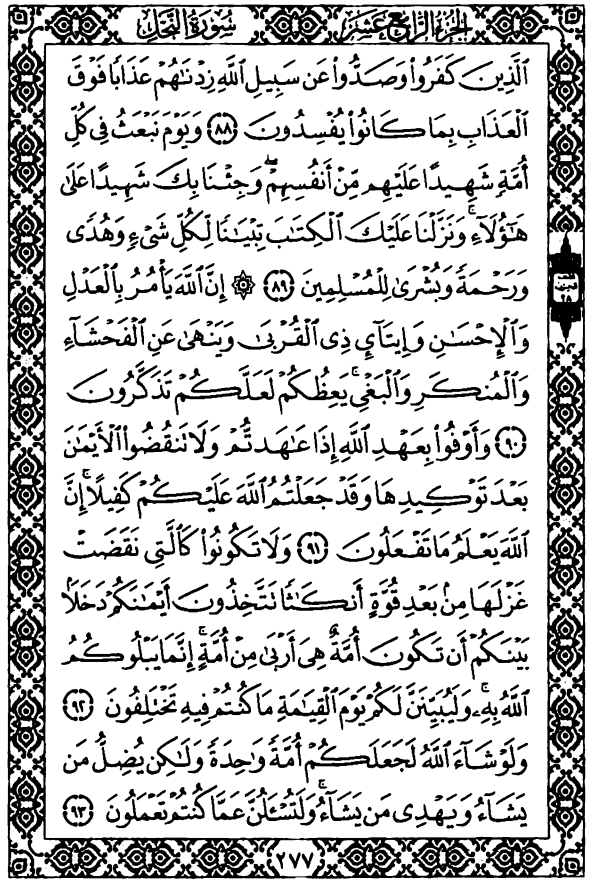 الجزء الرابع عشر
سورة النحل
ٱلَّذِينَ كَفَرُوا۟ وَصَدُّوا۟ عَن سَبِيلِ ٱللَّهِ زِدْنَـٰهُمْ عَذَابًا فَوْقَ
ٱلْعَذَابِ بِمَا كَانُوا۟ يُفْسِدُونَ ٨٨ وَيَوْمَ نَبْعَثُ فِى كُلِّ
أُمَّةٍ شَهِيدًا عَلَيْهِم مِّنْ أَنفُسِهِمْ ۖ وَجِئْنَا بِكَ شَهِيدًا عَلَىٰ
هَـٰٓؤُلَآءِ ۚ وَنَزَّلْنَا عَلَيْكَ ٱلْكِتَـٰبَ تِبْيَـٰنًا لِّكُلِّ شَىْءٍ وَهُدًى
وَرَحْمَةً وَبُشْرَىٰ لِلْمُسْلِمِينَ ٨٩ ۞ إِنَّ ٱللَّهَ يَأْمُرُ بِٱلْعَدْلِ
وَٱلْإِحْسَـٰنِ وَإِيتَآئِ ذِى ٱلْقُرْبَىٰ وَيَنْهَىٰ عَنِ ٱلْفَحْشَآءِ
وَٱلْمُنكَرِ وَٱلْبَغْىِ ۚ يَعِظُكُمْ لَعَلَّكُمْ تَذَكَّرُونَ
٩٠ وَأَوْفُوا۟ بِعَهْدِ ٱللَّهِ إِذَا عَـٰهَدتُّمْ وَلَا تَنقُضُوا۟ ٱلْأَيْمَـٰنَ
بَعْدَ تَوْكِيدِهَا وَقَدْ جَعَلْتُمُ ٱللَّهَ عَلَيْكُمْ كَفِيلًا ۚ إِنَّ
ٱللَّهَ يَعْلَمُ مَا تَفْعَلُونَ ٩١ وَلَا تَكُونُوا۟ كَٱلَّتِى نَقَضَتْ
غَزْلَهَا مِنۢ بَعْدِ قُوَّةٍ أَنكَـٰثًا تَتَّخِذُونَ أَيْمَـٰنَكُمْ دَخَلًۢا
بَيْنَكُمْ أَن تَكُونَ أُمَّةٌ هِىَ أَرْبَىٰ مِنْ أُمَّةٍ ۚ إِنَّمَا يَبْلُوكُمُ
ٱللَّهُ بِهِۦ ۚ وَلَيُبَيِّنَنَّ لَكُمْ يَوْمَ ٱلْقِيَـٰمَةِ مَا كُنتُمْ فِيهِ تَخْتَلِفُونَ ٩٢
وَلَوْ شَآءَ ٱللَّهُ لَجَعَلَكُمْ أُمَّةً وَٰحِدَةً وَلَـٰكِن يُضِلُّ مَن
يَشَآءُ وَيَهْدِى مَن يَشَآءُ ۚ وَلَتُسْـَٔلُنَّ عَمَّا كُنتُمْ تَعْمَلُونَ ٩٣
٢٧٧